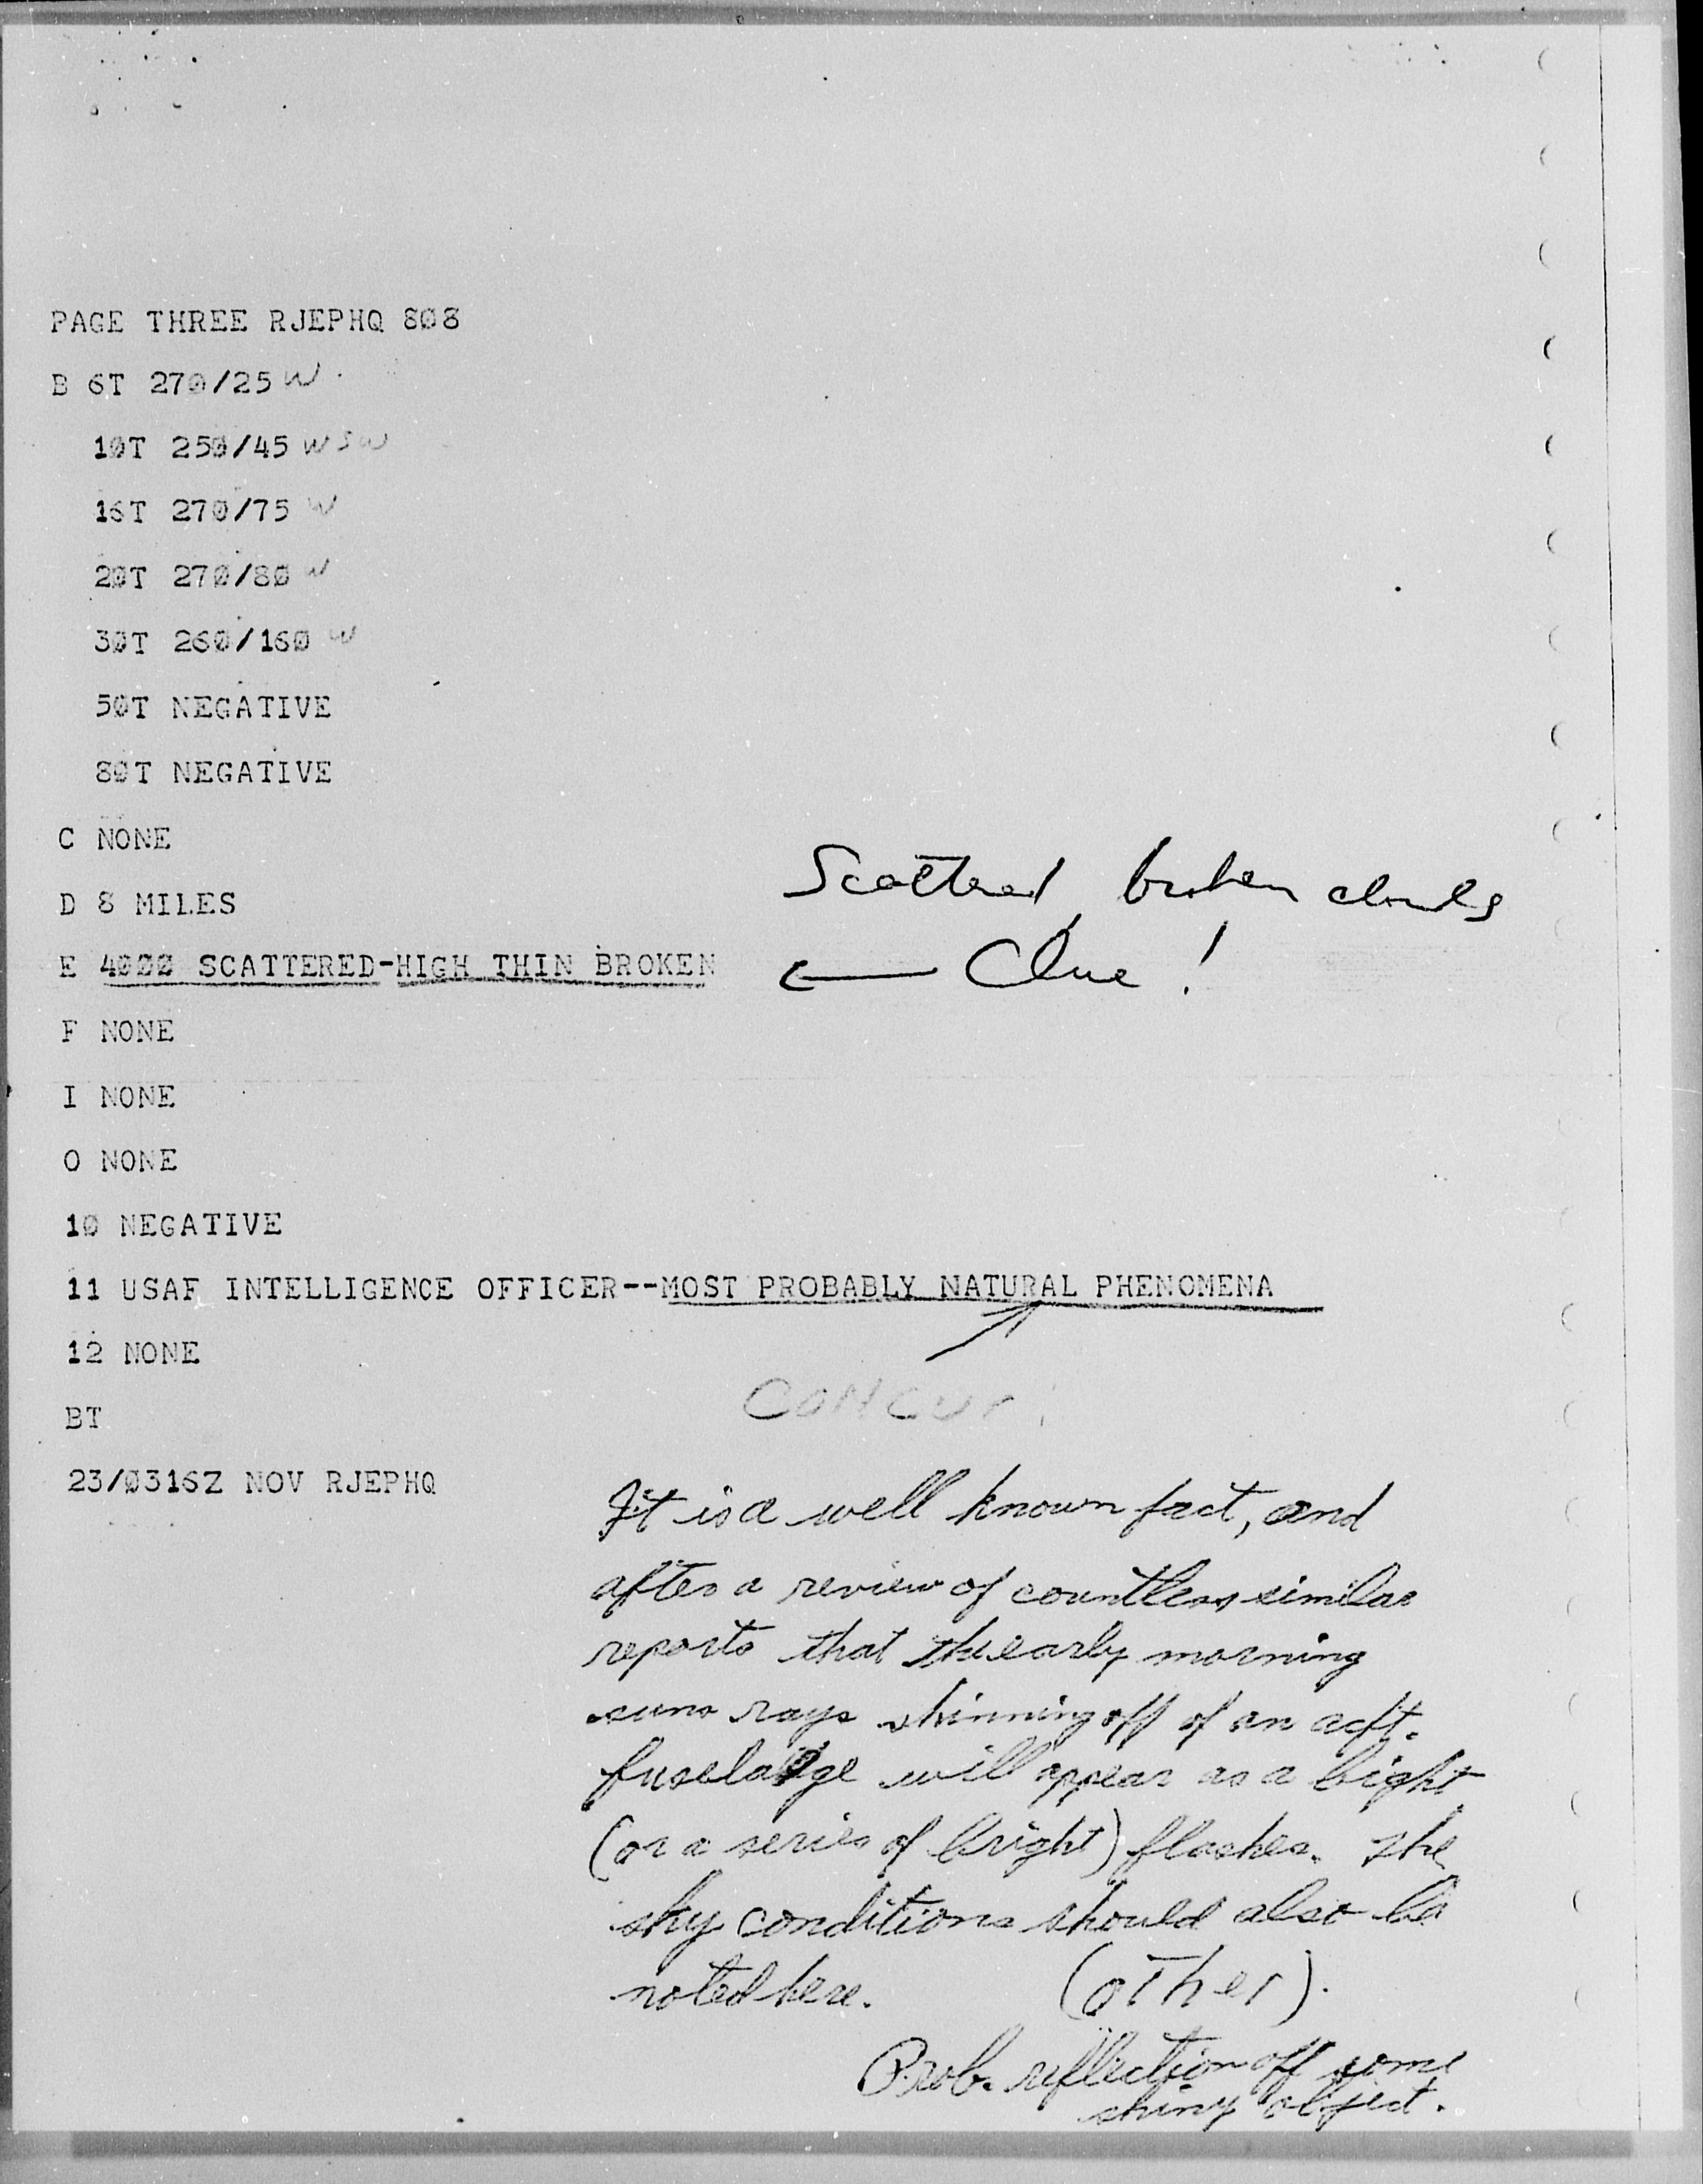 PAGE THREE RJEPHQ 808
B 6T 270/25 W
10T 250/45 WSW
16T 270/75 W
20T 270/80 W
30T 260/160 W
50T NEGATIVE
80T NEGATIVE
C NONE
D 8 MILES
Scattered broken clouds
E 4000 SCATTERED-HIGH THIN BROKEN ← Clue!
F NONE
I NONE
O NONE
10 NEGATIVE
11 USAF INTELLIGENCE OFFICER--MOST PROBABLY NATURAL PHENOMENA
12 NONE
CONCUR!
BT
23/0316Z NOV RJEPHQ
It is a well known fact, and
after a review of countless similar
reports that the early morning
suns rays shinning off of an acft.
fuselage will appear as a bight
(or a series of bright) flashes. The
sky conditions should also be
noted here. (other).
Prob. reflection off some
shiny object.